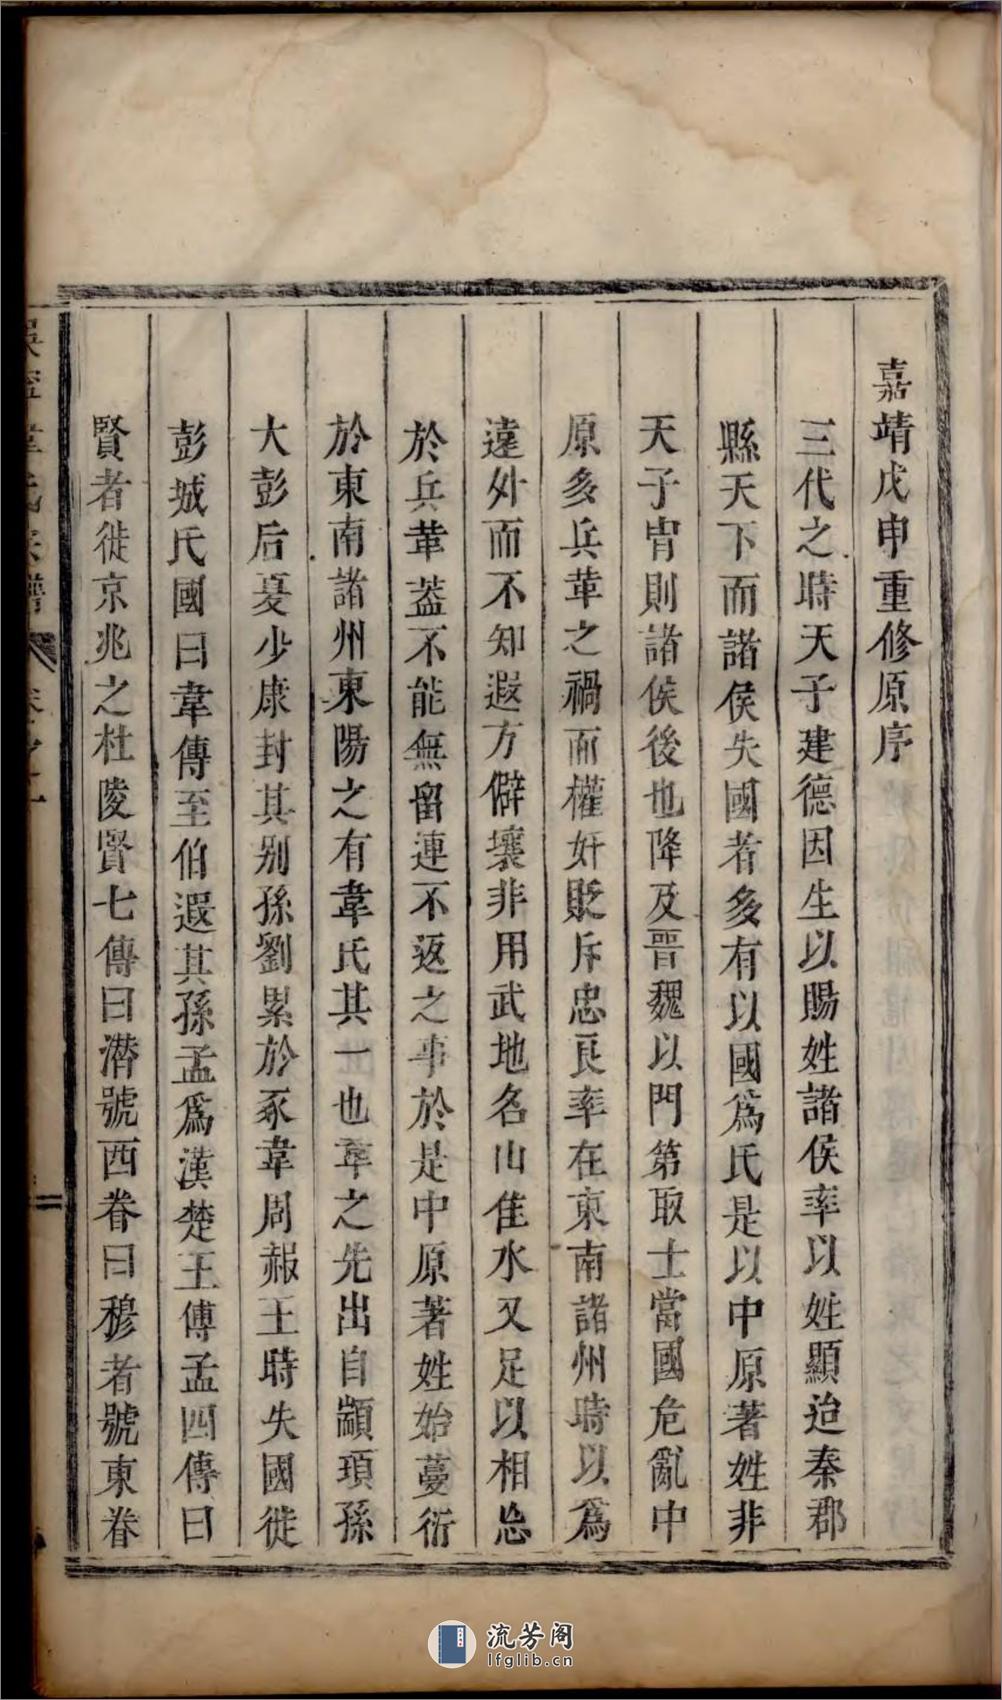 嘉靖戊申重修原序
三代之時天子建德因生以賜姓諸侯率以姓顯迨秦郡
縣天下而諸侯失國者多有以國爲氏是以中原著姓非
天子胄則諸侯後也降及晋魏以門第取士當國危亂中
原多兵革之禍而權奸貶斥忠良率在東南諸州時以爲
遠外而不知遐方僻壤非用武地名山佳水又足以相忘
於兵革蓋不能無留連不返之事於是中原著姓始蔓衍
於東南諸州東陽之有韋氏其一也韋之先出自顓頊孫
大彭后夏少康封其别孫劉累於豕韋周赧王時失國徙
彭城氏國曰韋傳至伯遐其孫孟爲漢楚王傅孟四傳曰
賢者徙京兆之杜陵賢七傳曰潜號西眷曰穆者號東眷
韋氏宗譜
流芳阁
lfglib.cn